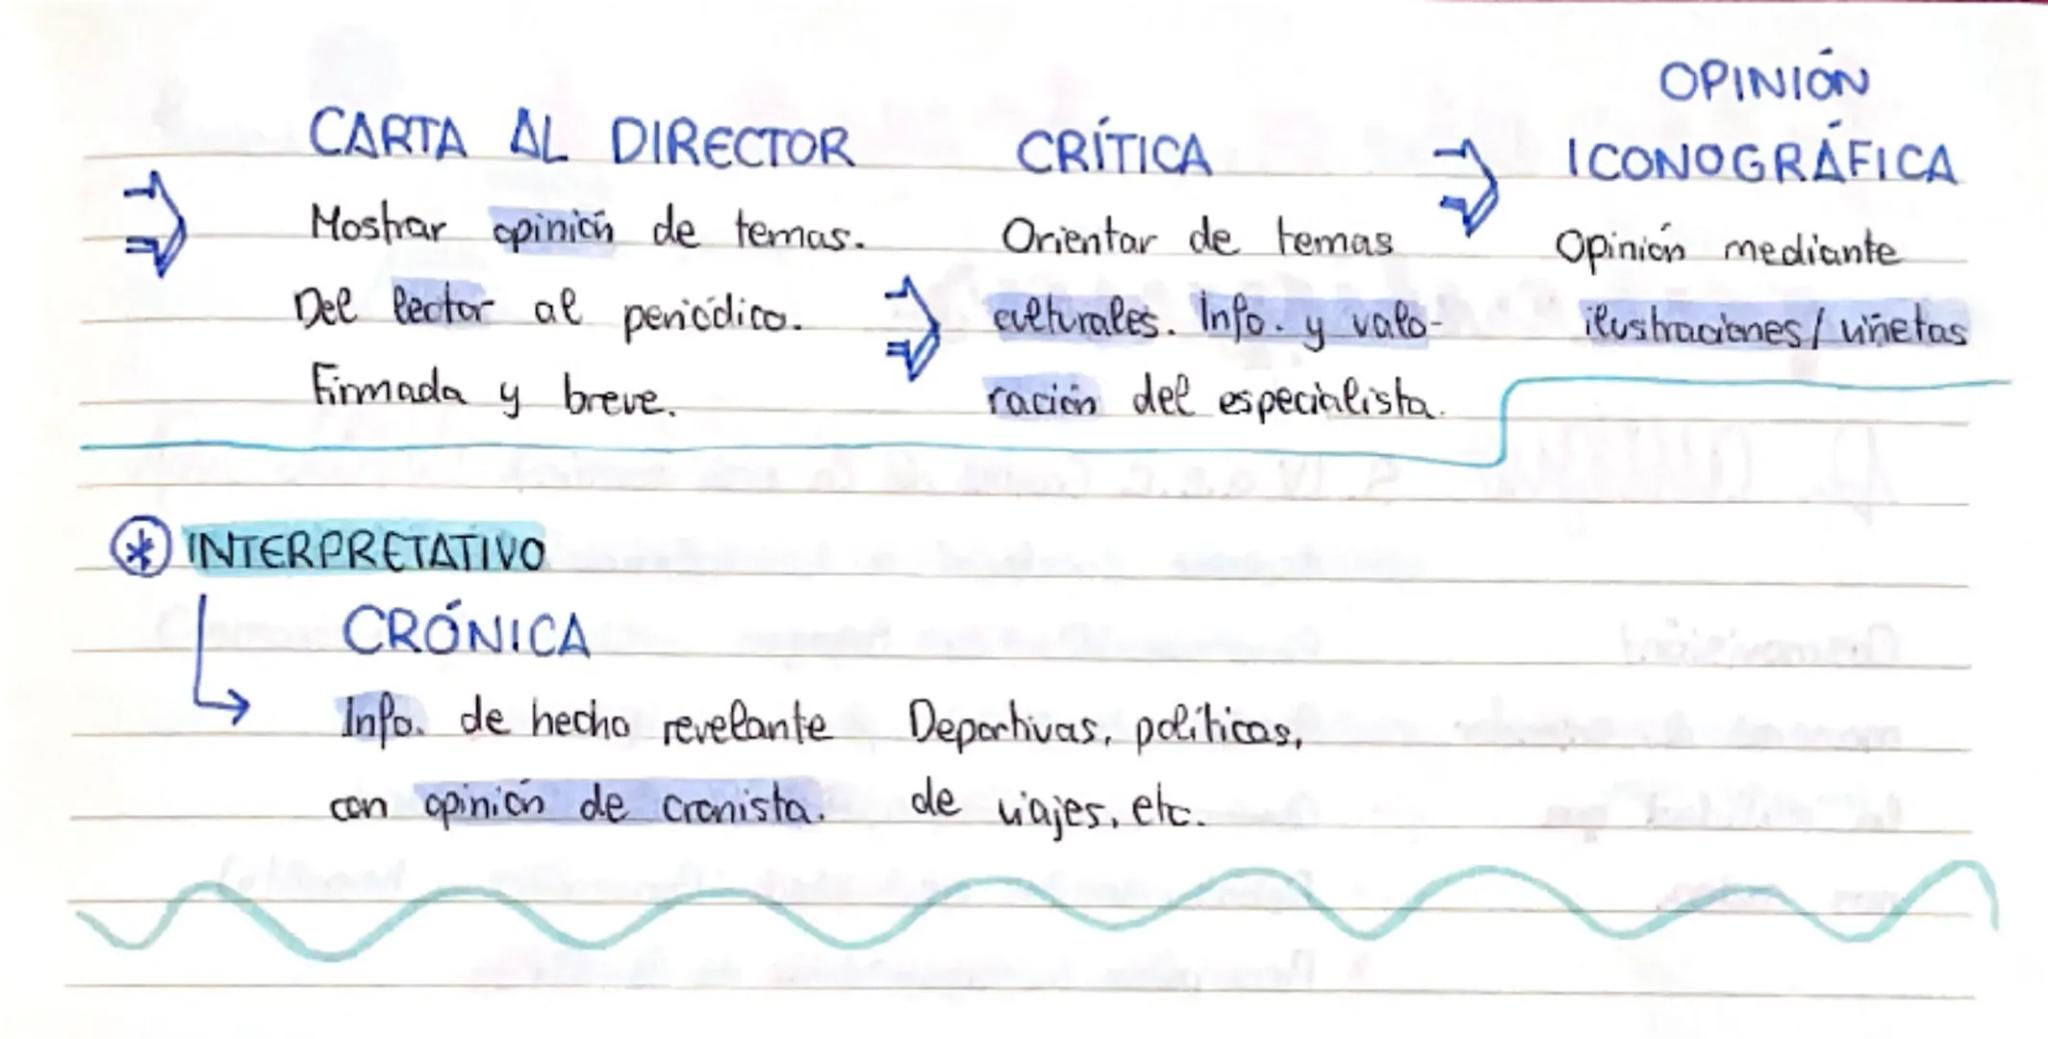 CARTA AL DIRECTOR
Mostrar opinión de temas.
Del lector al periódico.
Firmada y breve.
CRÍTICA
Orientar de temas
culturales. Info. y valo-
ración del especialista.
OPINIÓN
ICONOGRÁFICA
Opinión mediante
ilustraciones/viñetas
* INTERPRETATIVO
CRÓNICA
Info. de hecho revelante
con opinión de cronista.
Deportivas, políticas,
de viajes, etc.